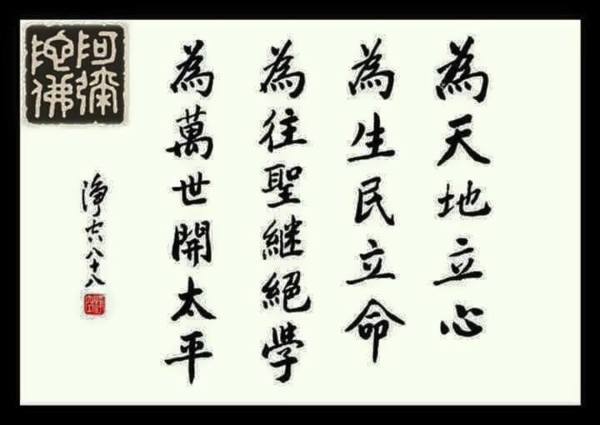 為天地立心
為生民立命
為往聖継絕學
為萬世開太平
淨空八十八
阿彌
陀佛